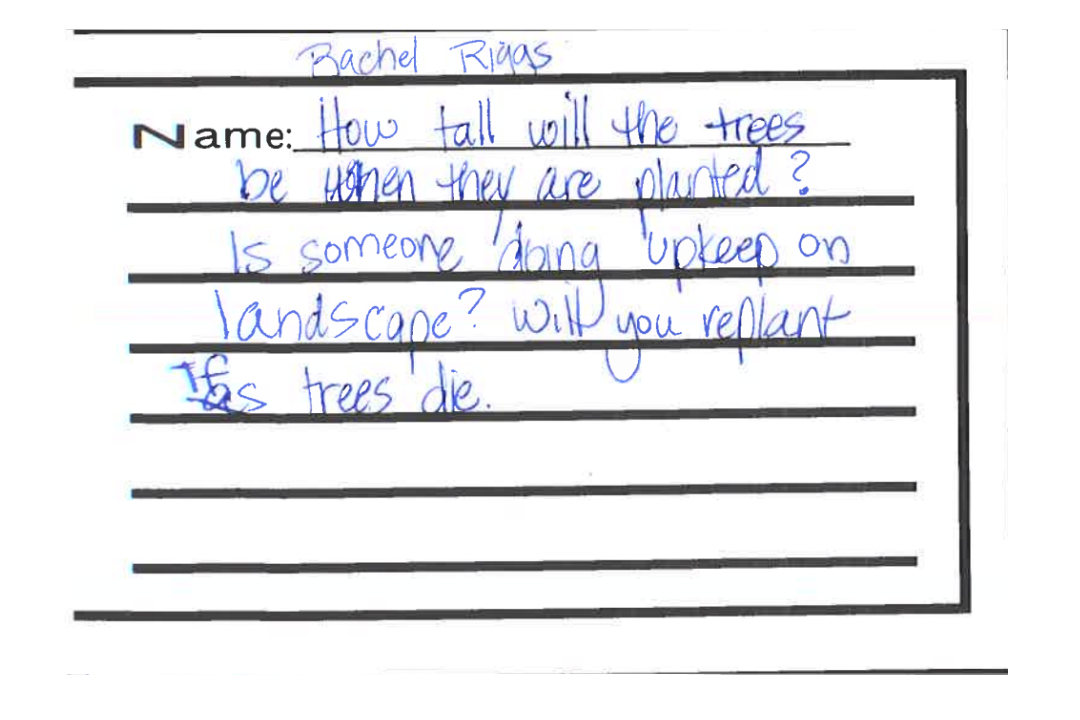 Rachel Riggs
Name: How tall will the trees
be when they are planted?
Is someone doing upkeep on
landscape? Will you replant
If trees die.